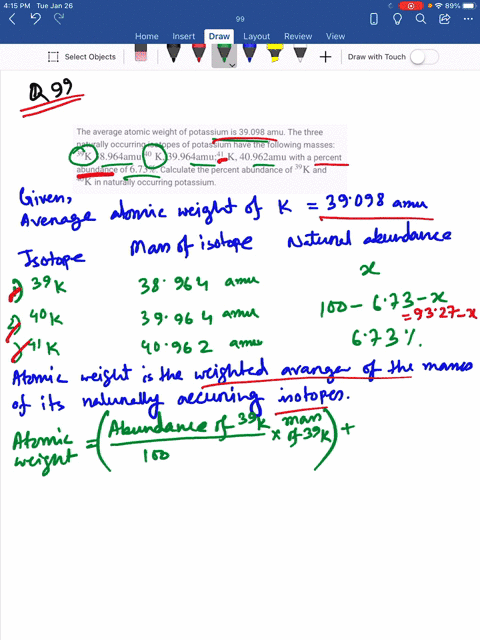 4:15 PM Tue Jan 26
89%
99
Home Insert Draw Layout Review View
Select Objects
Draw with Touch
Q 99
The average atomic weight of potassium is 39.098 amu. The three
naturally occurring isotopes of potassium have the following masses:
39K, 38.964amu; 40K, 39.964amu; 41K, 40.962amu with a percent
abundance of 6.73%. Calculate the percent abundance of 39K and
K in naturally occurring potassium.
Given,
Average atomic weight of K = 39.098 amu
Isotope Mass of isotope Natural abundance
1) 39K 38.964 amu x
2) 40K 39.964 amu 100 - 6.73 - x
= 93.27 - x
3) 41K 40.962 amu 6.73 %.
Atomic weight is the weighted avarager of the masses
of its naturally accuring isotopes.
Atomic weight = (Abundance of 39K / 100 × mass of 39K) +